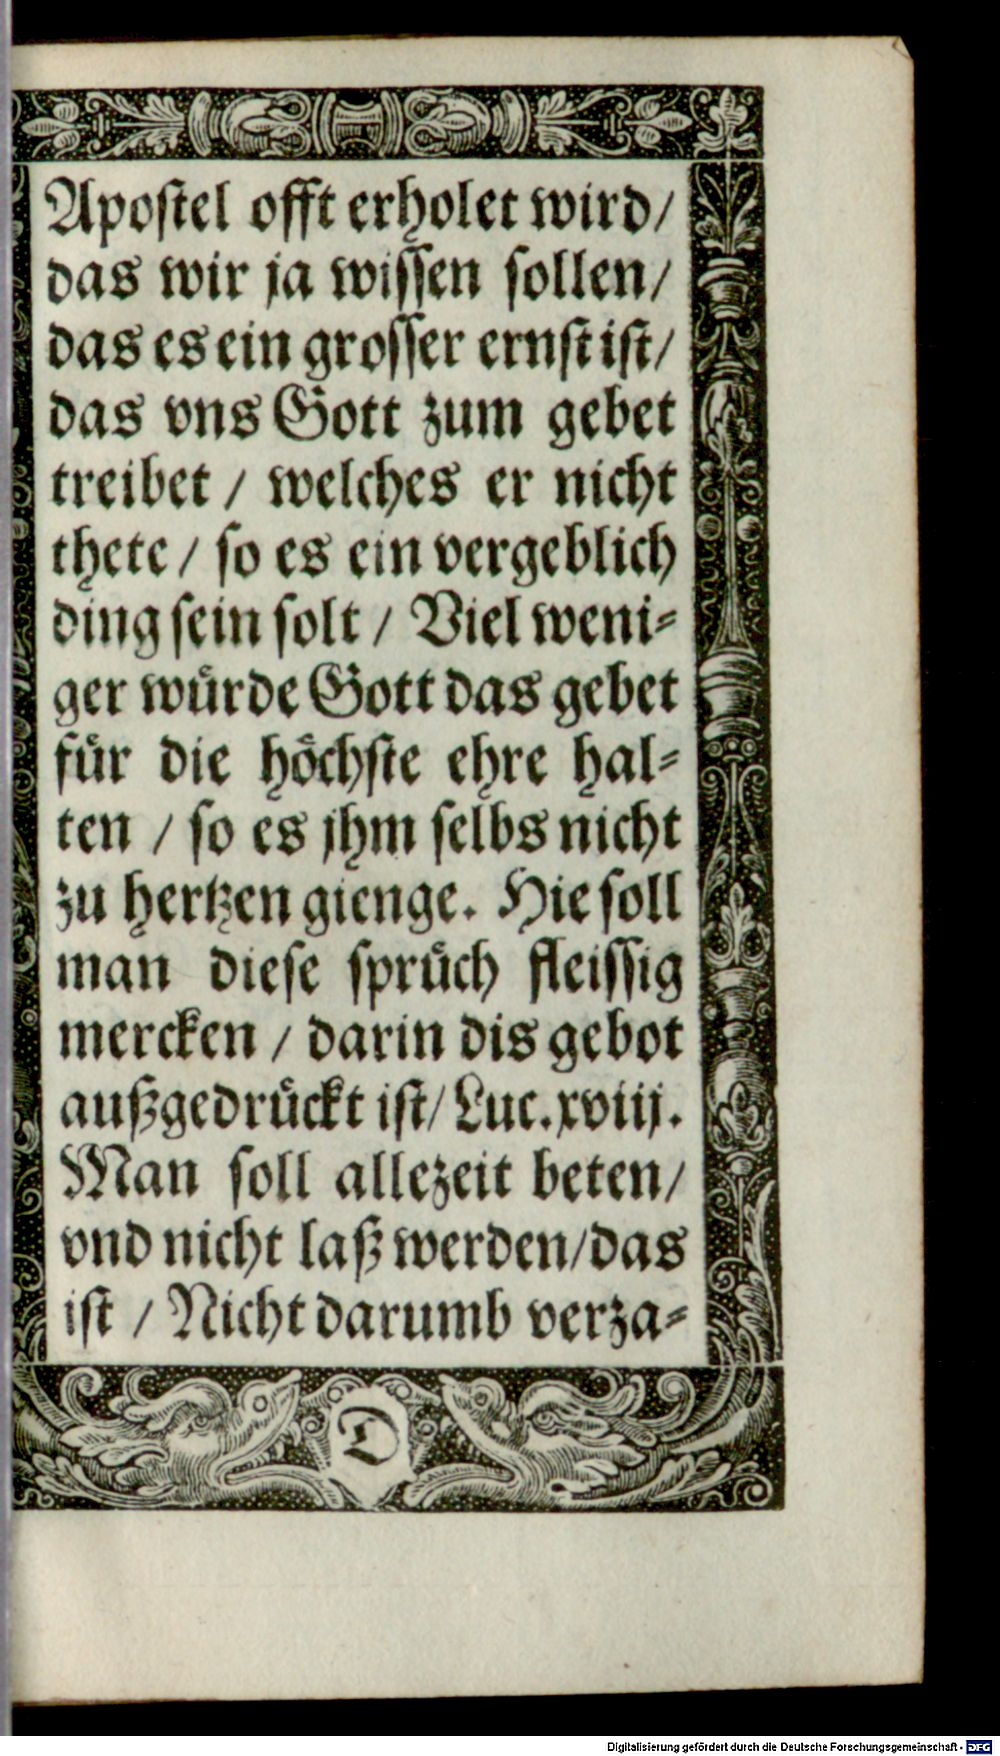 Apoſtel offt erholet wird/
das wir ja wiſſen ſollen/
das es ein groſſer ernſt iſt/
das vns Gott zum gebet
treibet / welches er nicht
thete / ſo es ein vergeblich
ding ſein ſolt / Viel weni⸗
ger wuͤrde Gott das gebet
fuͤr die hoͤchſte ehre hal⸗
ten / ſo es jhm ſelbs nicht
zu hertzen gienge. Hie ſoll
man dieſe ſpruͤch fleiſſig
mercken / darin dis gebot
außgedruͤckt iſt/ Luc. xviij.
Man ſoll allezeit beten/
vnd nicht laß werden/das
iſt / Nicht darumb verza⸗
D
Digitalisierung gefördert durch die Deutsche Forschungsgemeinschaft - DFG